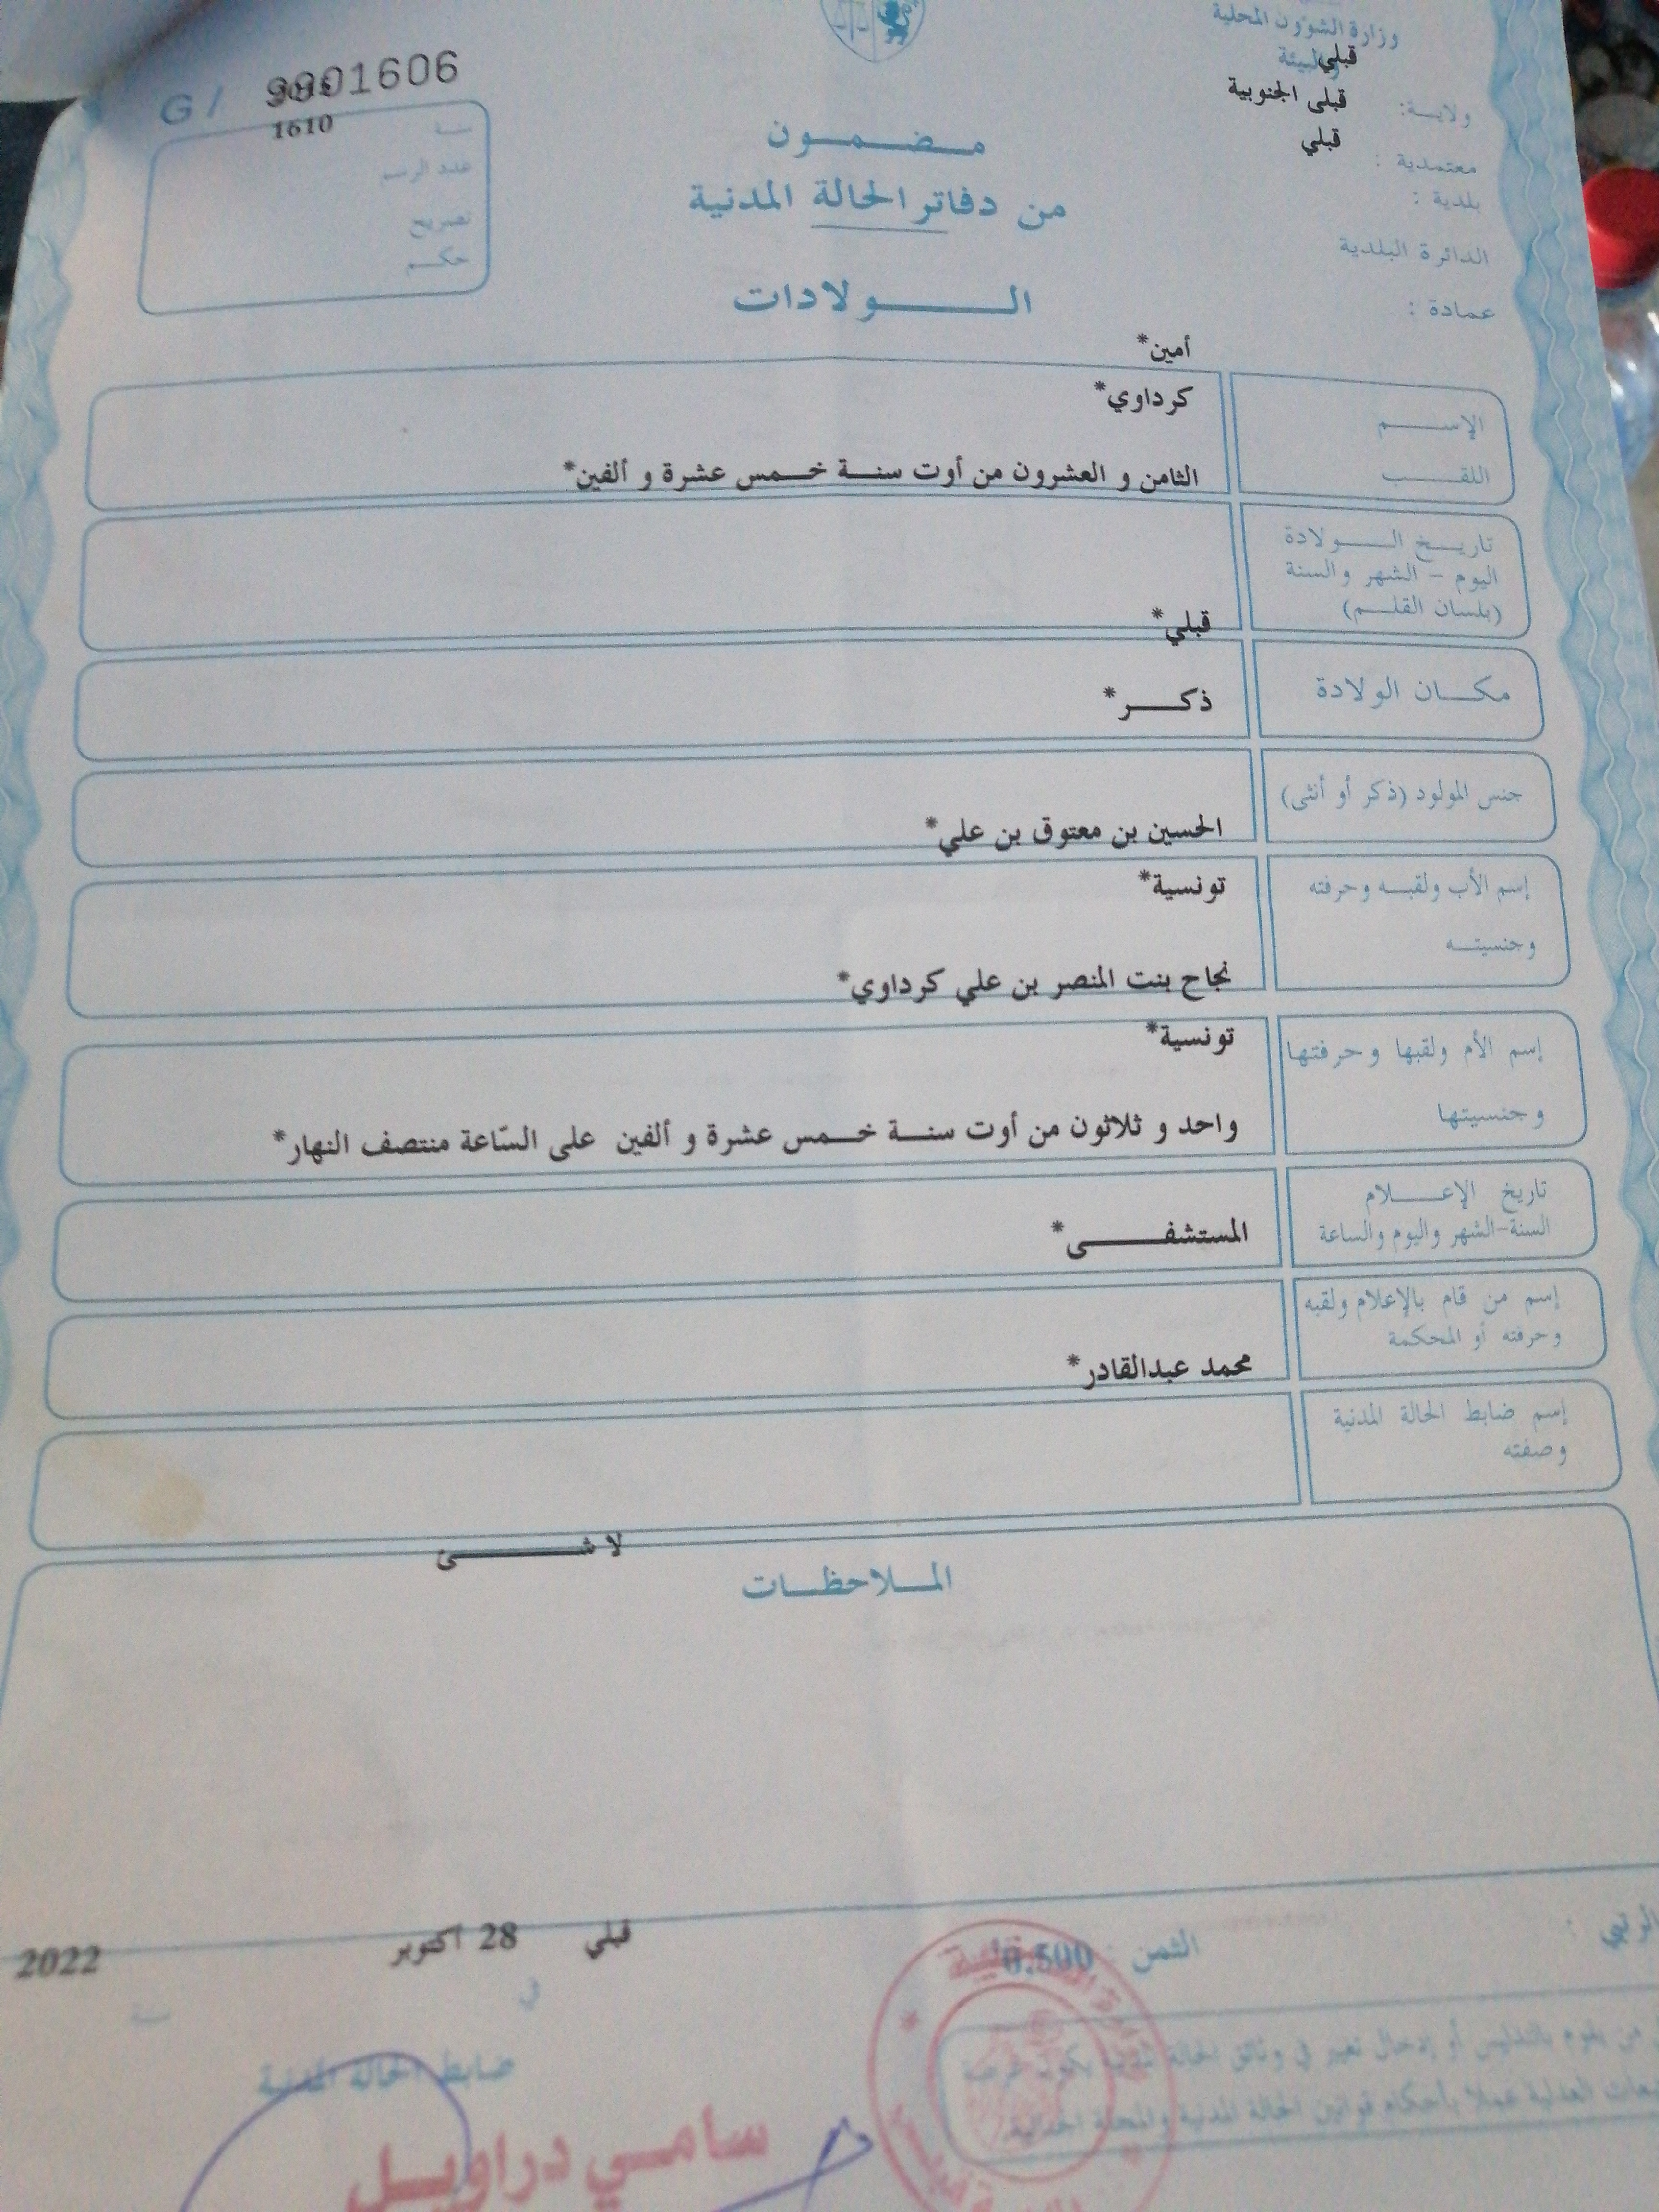 وزارة الشؤون المحلية
والبيئة
قبلي
ولاية:
قبلي الجنوبية
معتمدية :
قبلي
بلدية :
الدائرة البلدية
عمادة :
G/
1606
1610
سنة
عدد الرسم
تصريح
حكم
مضمون
من دفاتر الحالة المدنية
الولادات
أمين*
الإسم
كرداوي*
اللقب
الثامن و العشرون من أوت سنة خمس عشرة و ألفين*
تاريخ الولادة
اليوم - الشهر والسنة
(بلسان القلم)
قبلي*
مكان الولادة
ذكر*
جنس المولود (ذكر أو أنثى)
الحسين بن معتوق بن علي*
إسم الأب ولقبه وحرفته
تونسية*
وجنسيته
نجاح بنت المنصر بن علي كرداوي*
إسم الأم ولقبها وحرفتها
تونسية*
وجنسيتها
واحد و ثلاثون من أوت سنة خمس عشرة و ألفين على السّاعة منتصف النهار*
تاريخ الإعلام
السنة-الشهر واليوم والساعة
المستشفى*
إسم من قام بالإعلام ولقبه
وحرفته أو المحكمة
محمد عبدالقادر*
إسم ضابط الحالة المدنية
وصفته
لا شئ
الملاحظات
قبلي 28 أكتوبر 2022
الثمن 0.500
في
سنة
ضابط الحالة المدنية
من يقوم بالتدليس أو إدخال تغيير في وثائق الحالة المدنية يكون عرضة
عملا بأحكام قوانين الحالة المدنية والمجلة الجنائية.
سامي دراويل